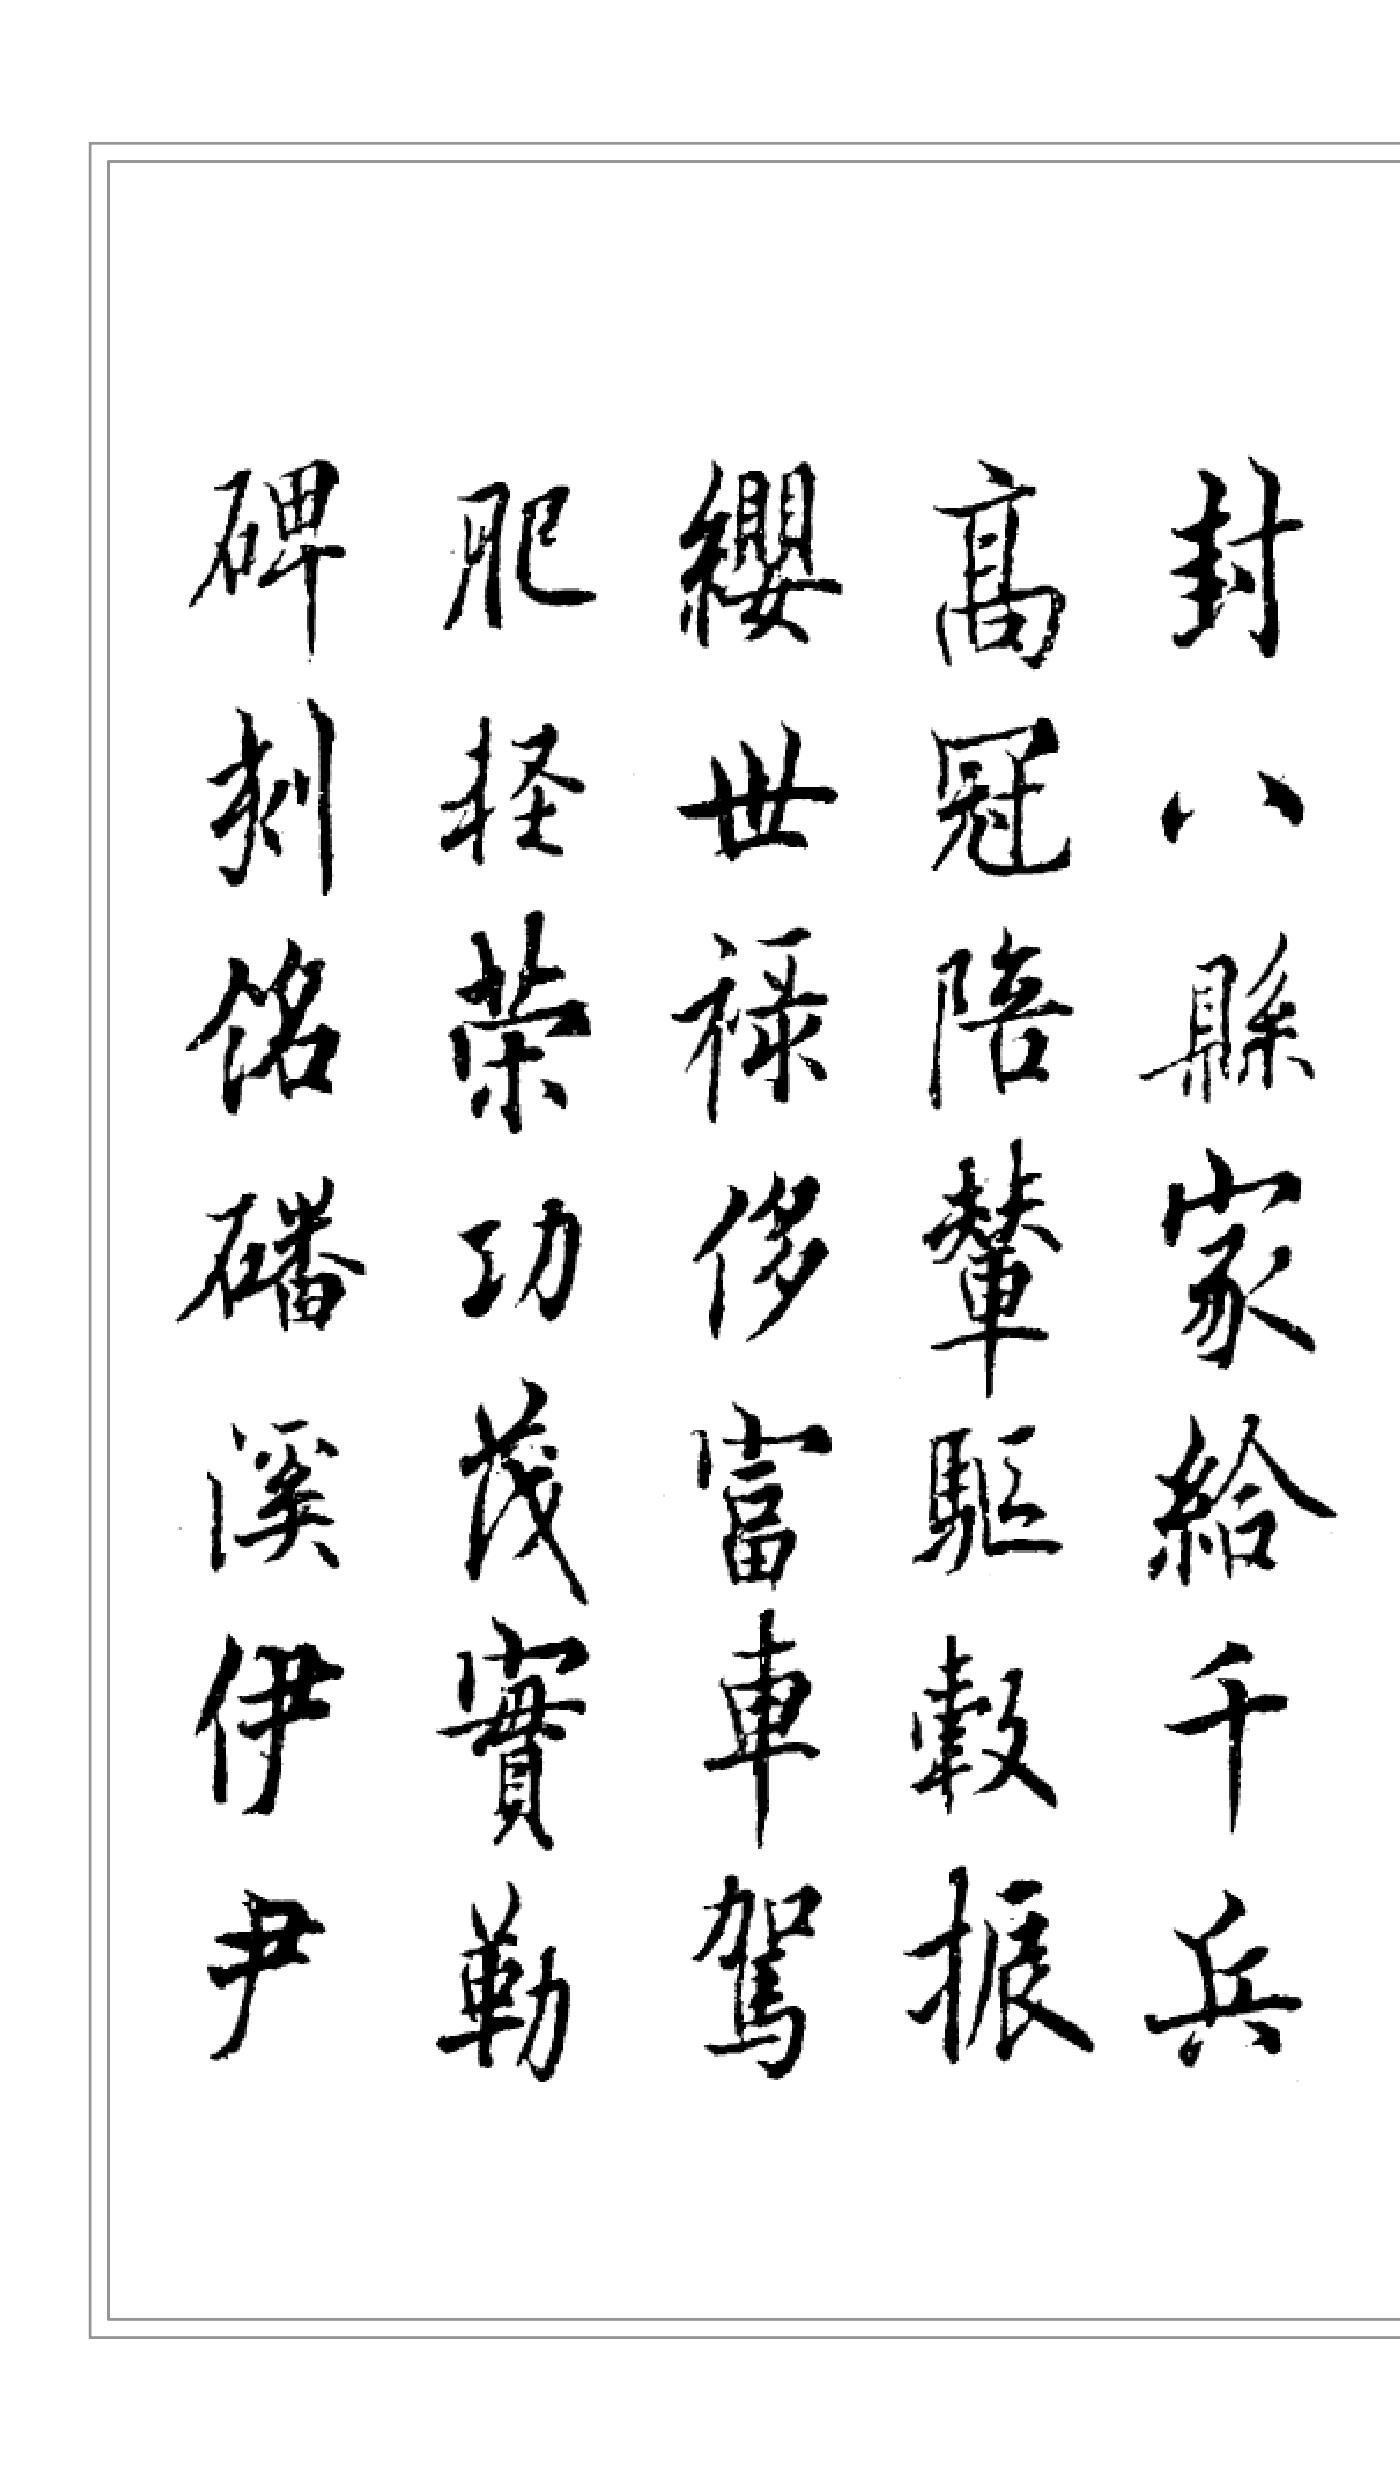 封八縣家給千兵
高冠陪輦驅轂振
纓世禄侈富車駕
肥軽榮功茂實勒
碑刻銘磻溪伊尹